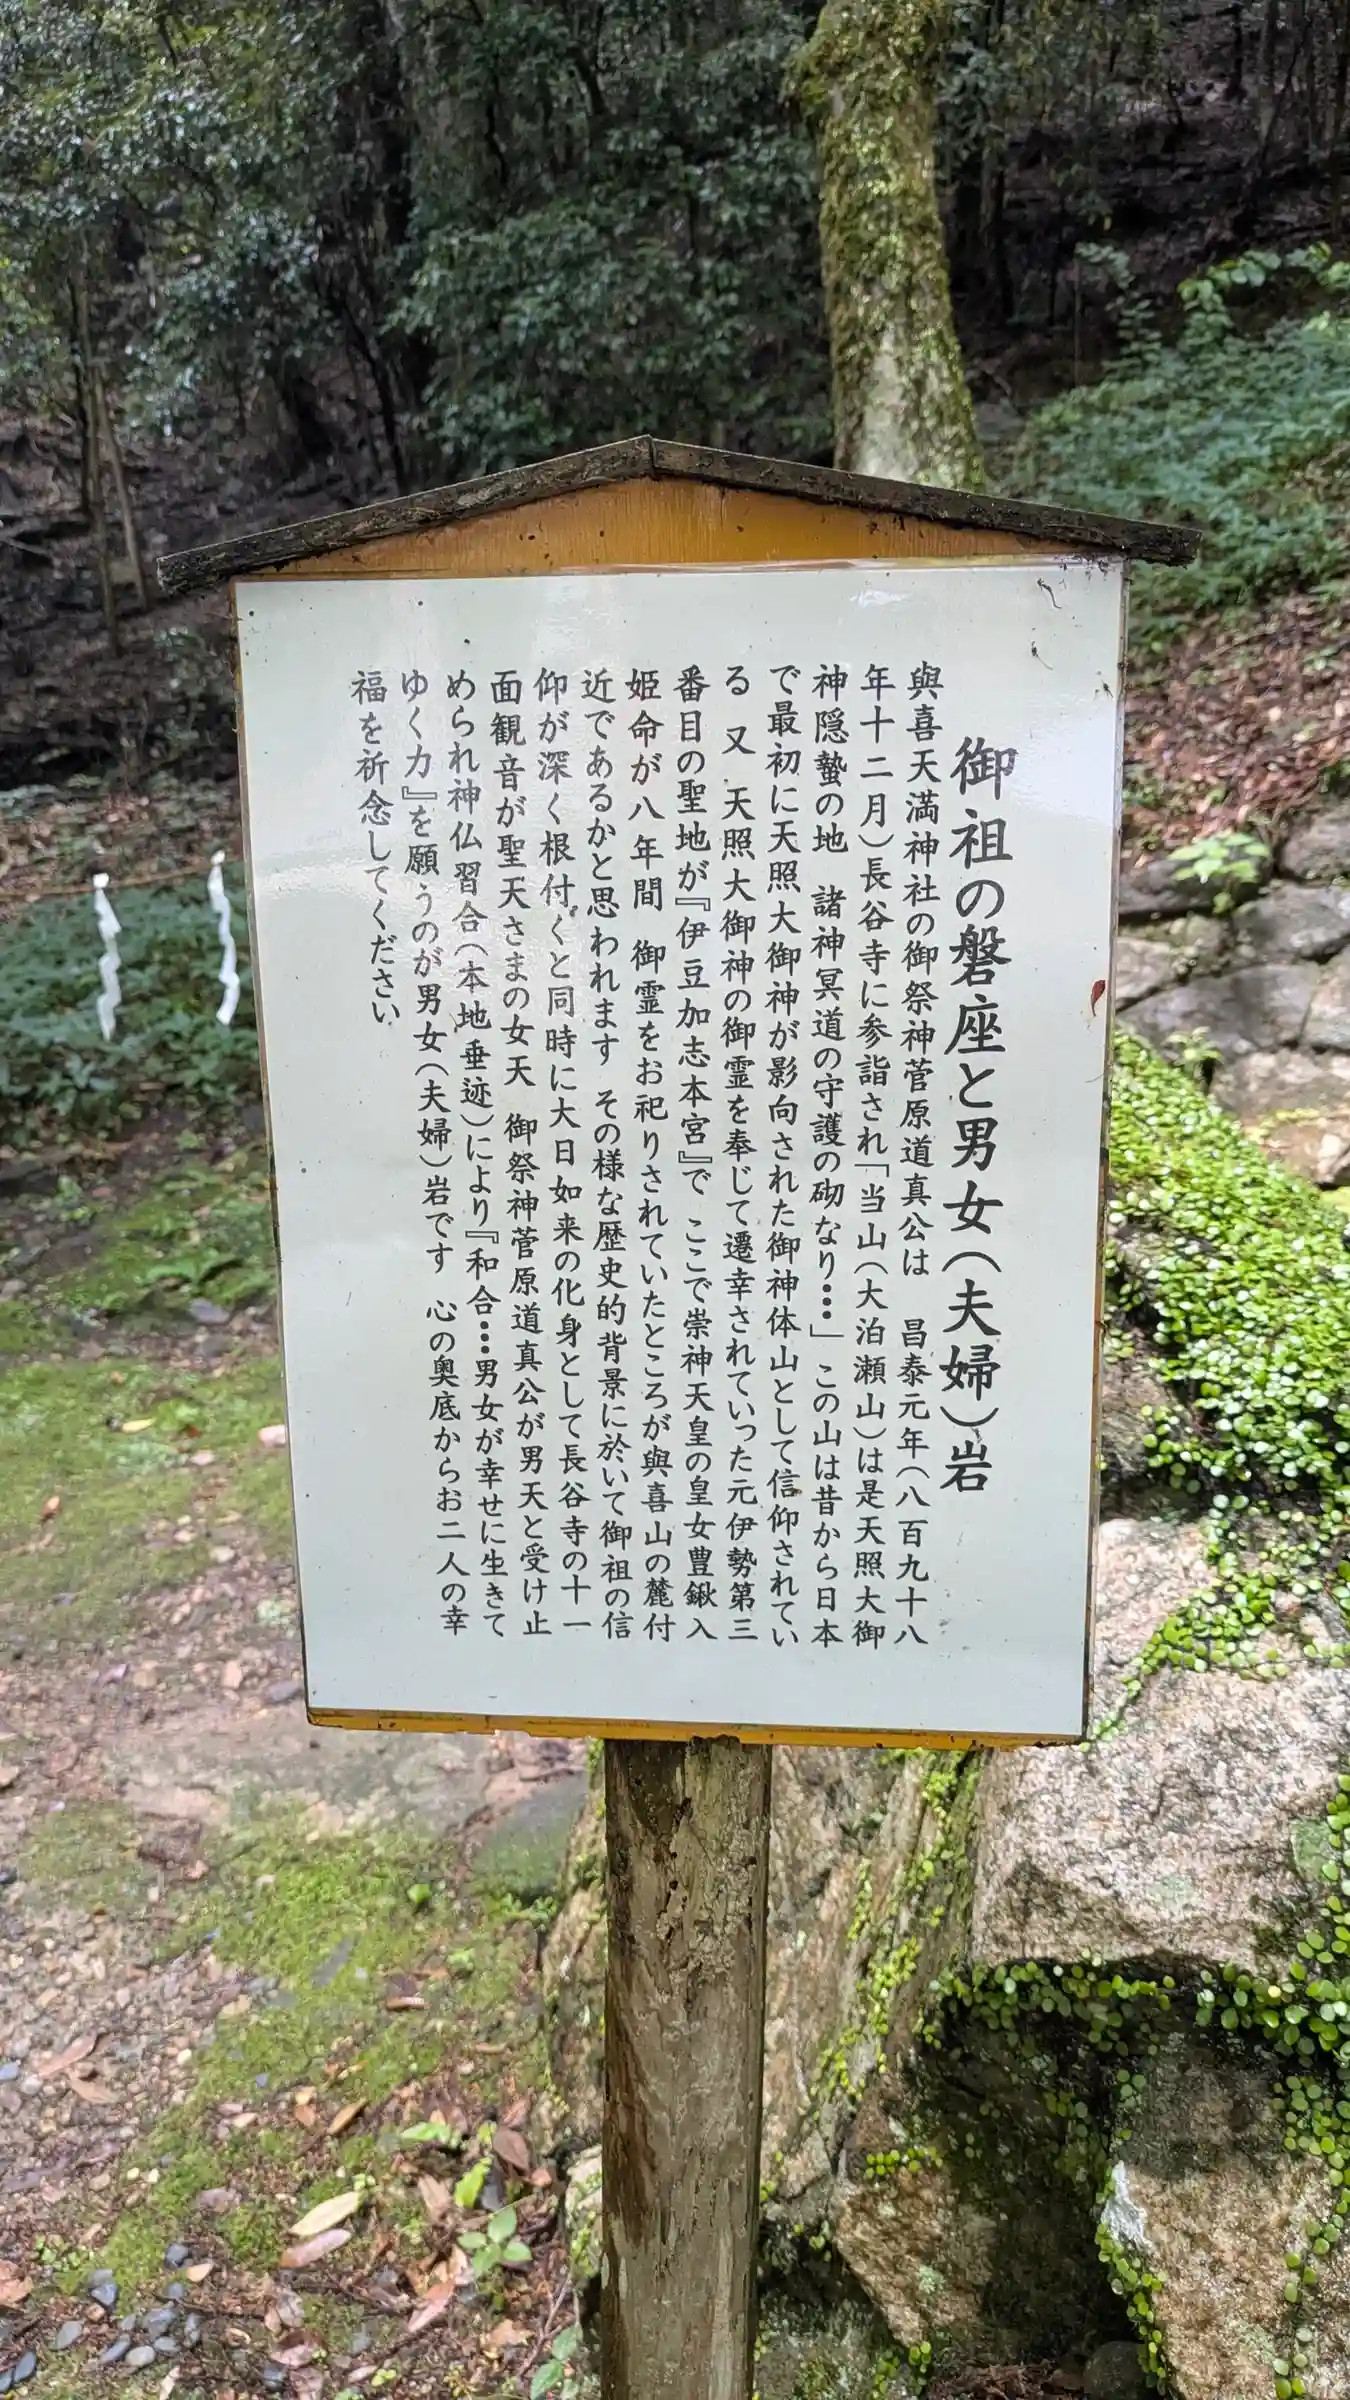 御祖の磐座と男女(夫婦)岩
與喜天満神社の御祭神菅原道真公は 昌泰元年(八百九十八
年十二月)長谷寺に参詣され「当山(大泊瀬山)は是天照大御
神隠蟄の地 諸神冥道の守護の砌なり…」この山は昔から日本
で最初に天照大御神が影向された御神体山として信仰されてい
る 又 天照大御神の御霊を奉じて遷幸されていった元伊勢第三
番目の聖地が『伊豆加志本宮』で ここで崇神天皇の皇女豊鍬入
姫命が八年間 御霊をお祀りされていたところが與喜山の麓付
近であるかと思われます その様な歴史的背景に於いて御祖の信
仰が深く根付くと同時に大日如来の化身として長谷寺の十一
面観音が聖天さまの女天 御祭神菅原道真公が男天と受け止
められ神仏習合(本地垂迹)により『和合…男女が幸せに生きて
ゆく力』を願うのが男女(夫婦)岩です 心の奥底からお二人の幸
福を祈念してください